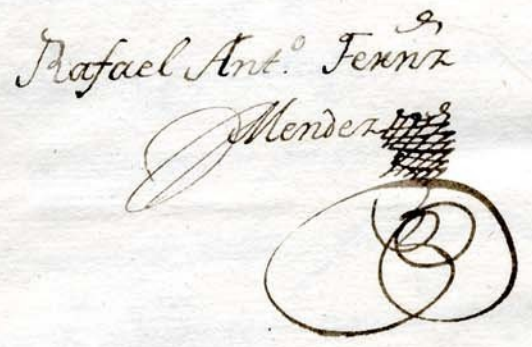 Rafael Ant.º Fernz
Mendez